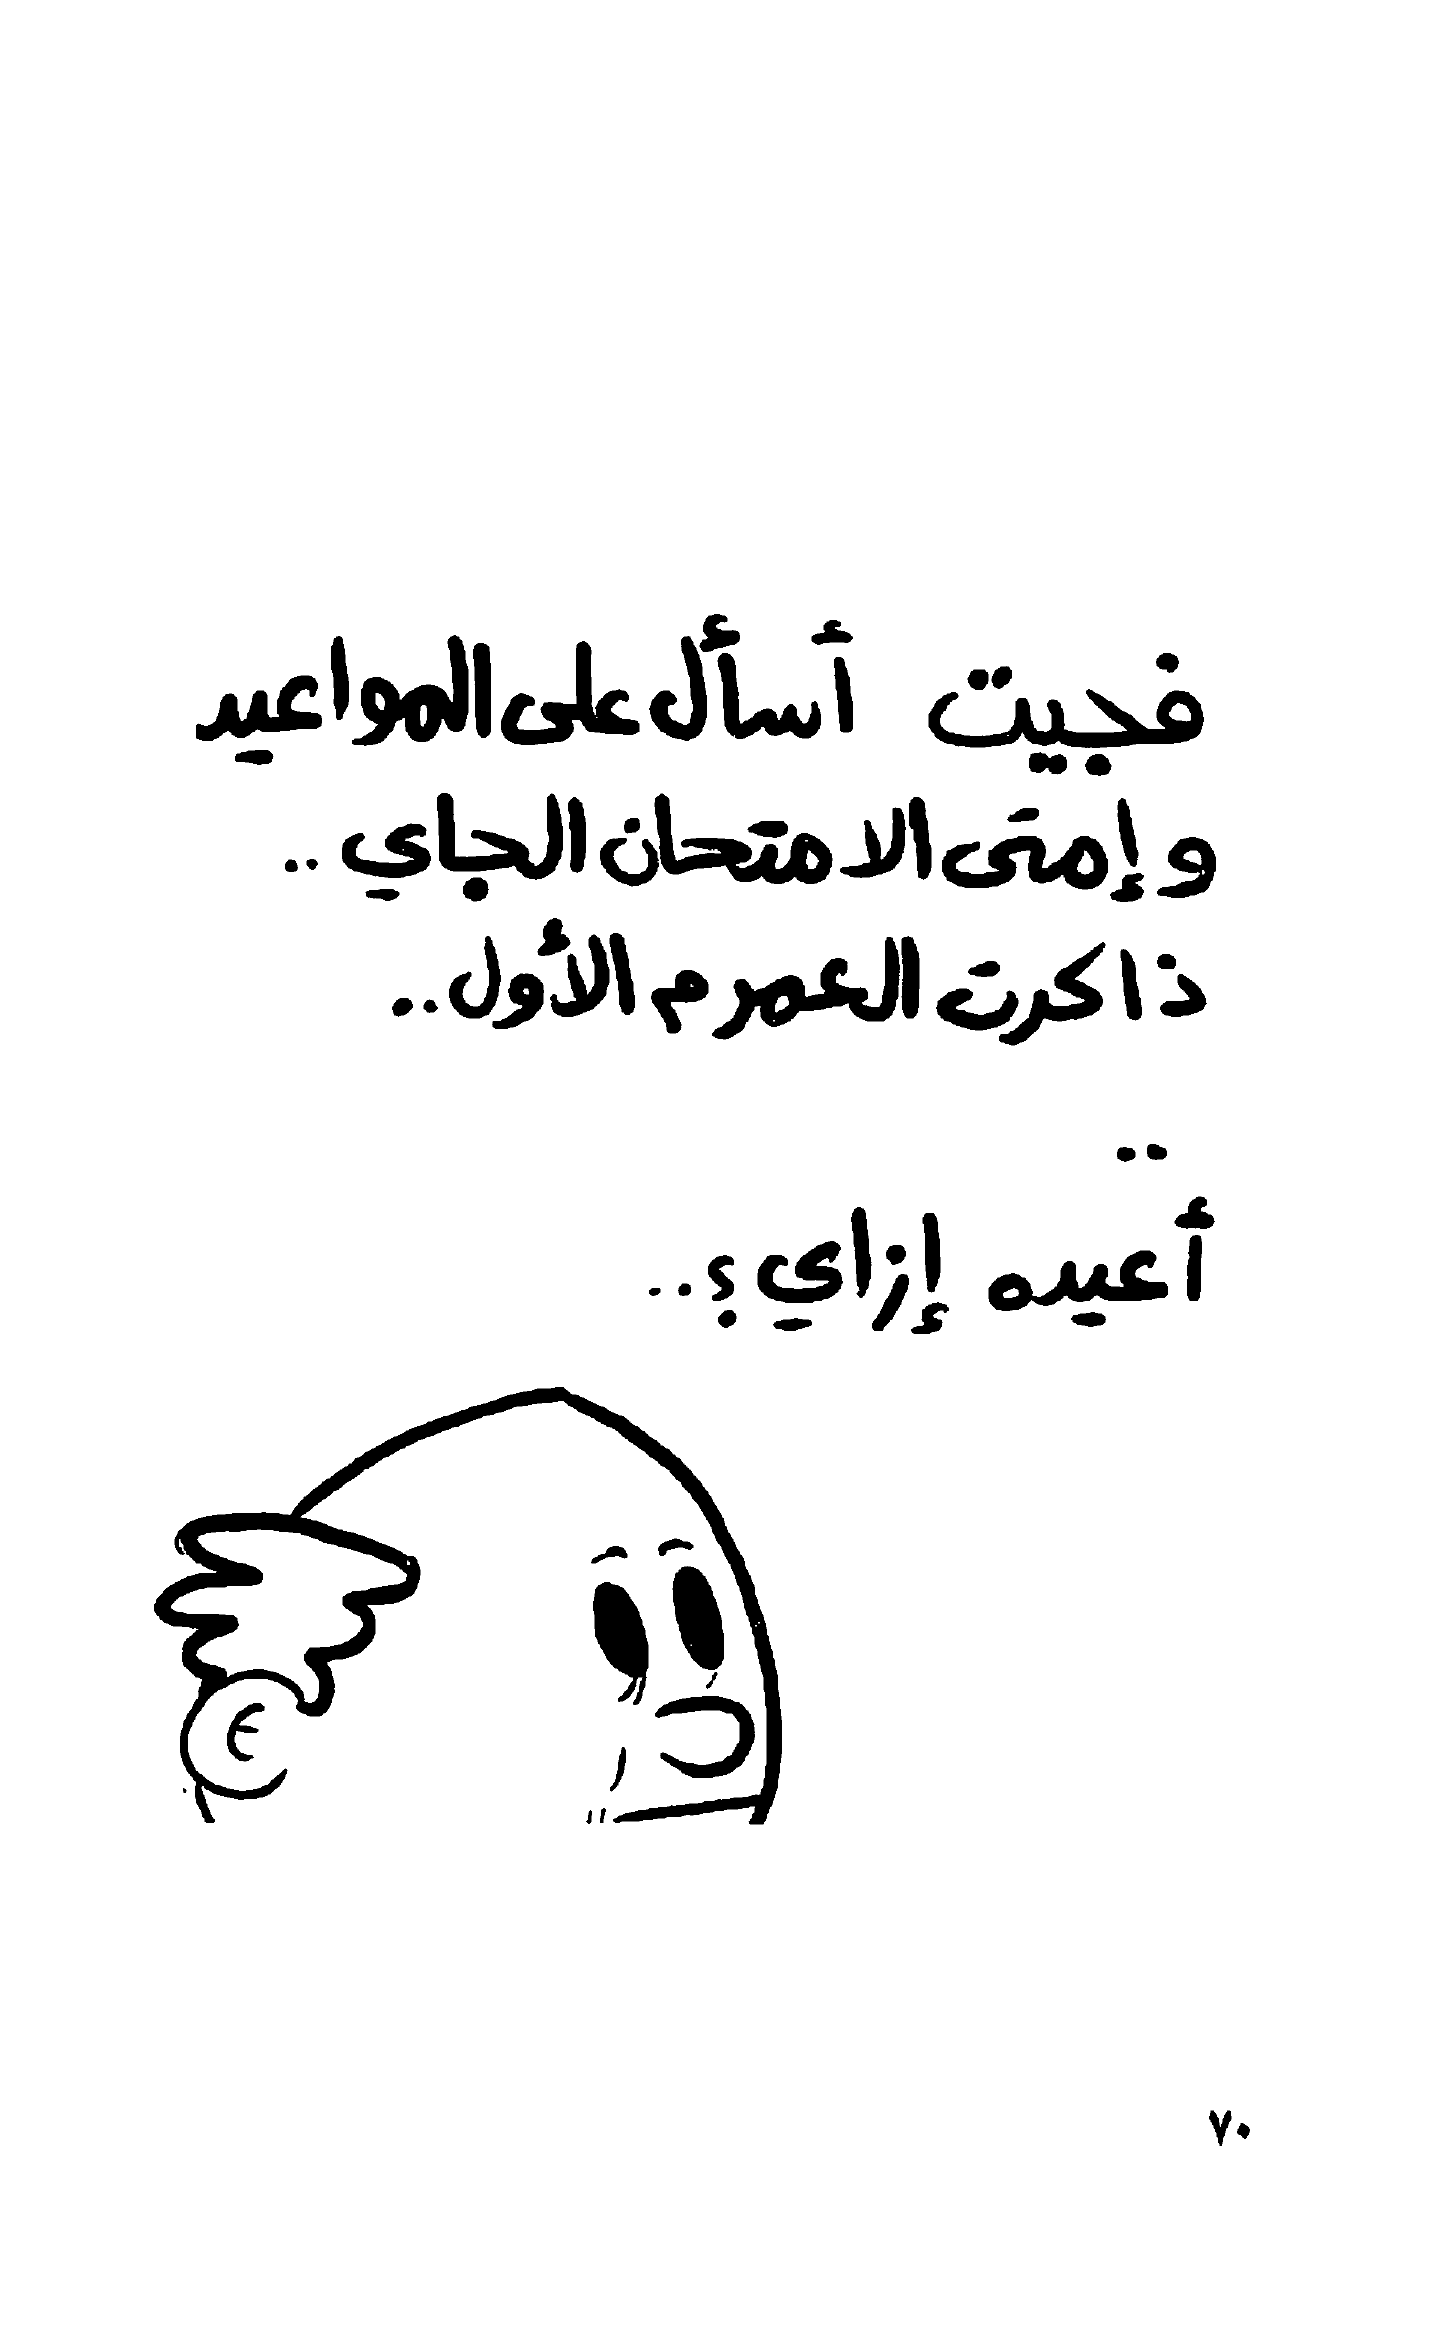 فجيت أسأل على المواعيد
وإمتى الامتحان الجاي ..
ذاكرت العمر م الأول..
..
أعيده إزاي؟..
٧٠